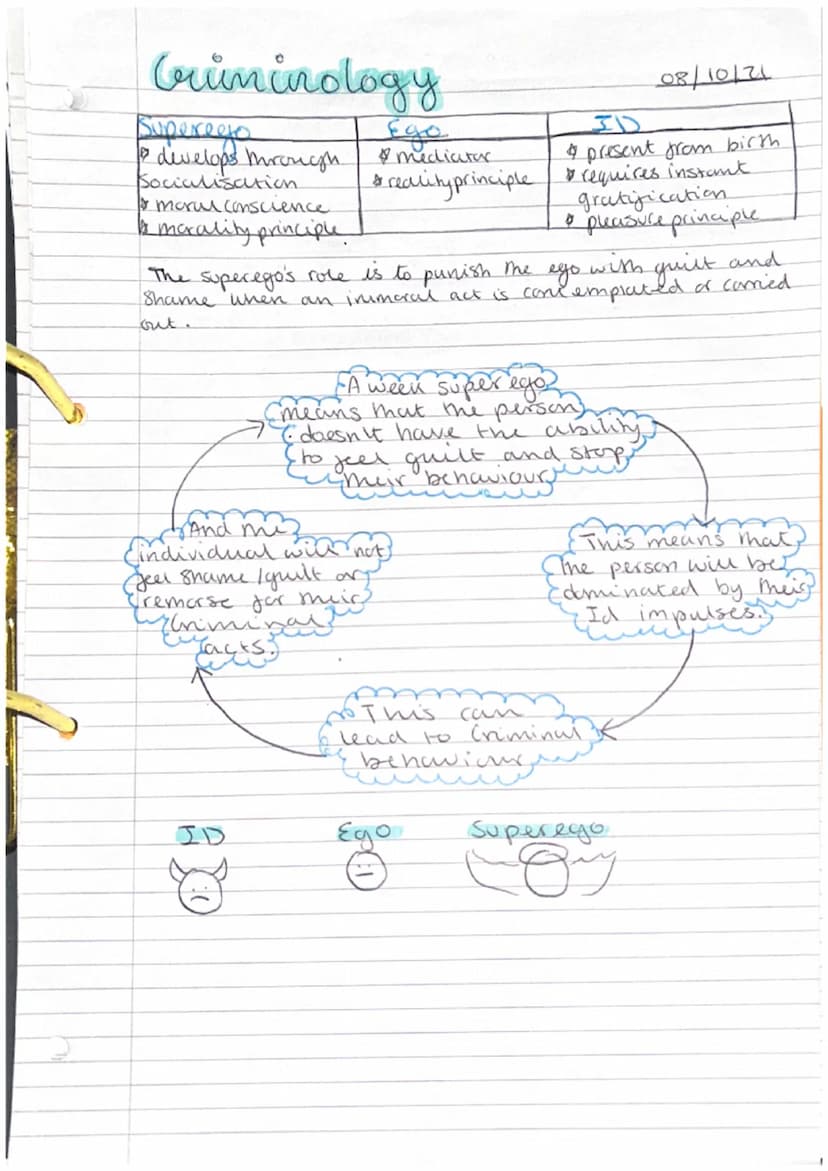 Criminology
08/10/21
Superego
develops through
socialisation
moral conscience
morality principle.
Ego
mediator
reality principle
ID
present from birth
requires instant
gratification
pleasure principle
The superego's role is to punish the ego with guilt and
shame when an immoral act is contemplated or carried
out.
A week superego
means that the person
doesn't have the ability
to feel guilt and stop
their behaviour
This means that
the person will be
dominated by their
Id impulses.
This can
lead to criminal
behaviour
And the
individual will not
feel shame/guilt or
remorse for their
criminal
acts.
ID
Ego
Superego